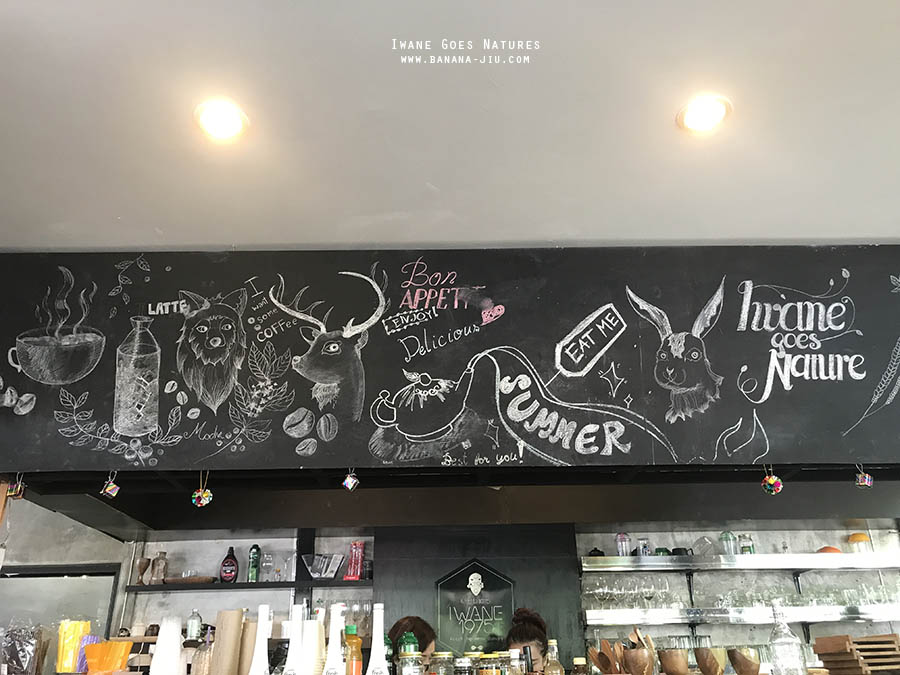 Iwane Goes Natures
www.banana-jiu.com
Bon
APPETIT
ENJOY!
Delicious
LATTE
I
want
some
COFFEE
EAT ME
SUMMER
Iwane
goes
Nature
Mocha
Best for you!
IWANE
1975